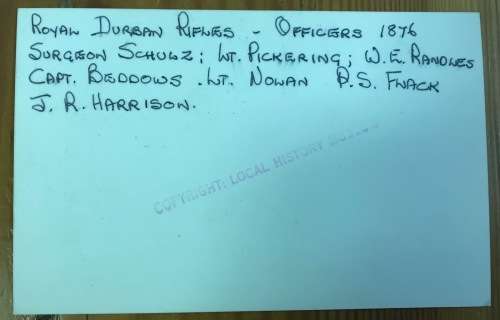 ROYAL DURBAN RIFLES - OFFICERS 1876
SURGEON SCHULZ; LT. PICKERING; W.E. RANDLES
CAPT. BEDDOWS. LT. NOLAN P.S. FLACK
J. R. HARRISON.
COPYRIGHT: LOCAL HISTORY